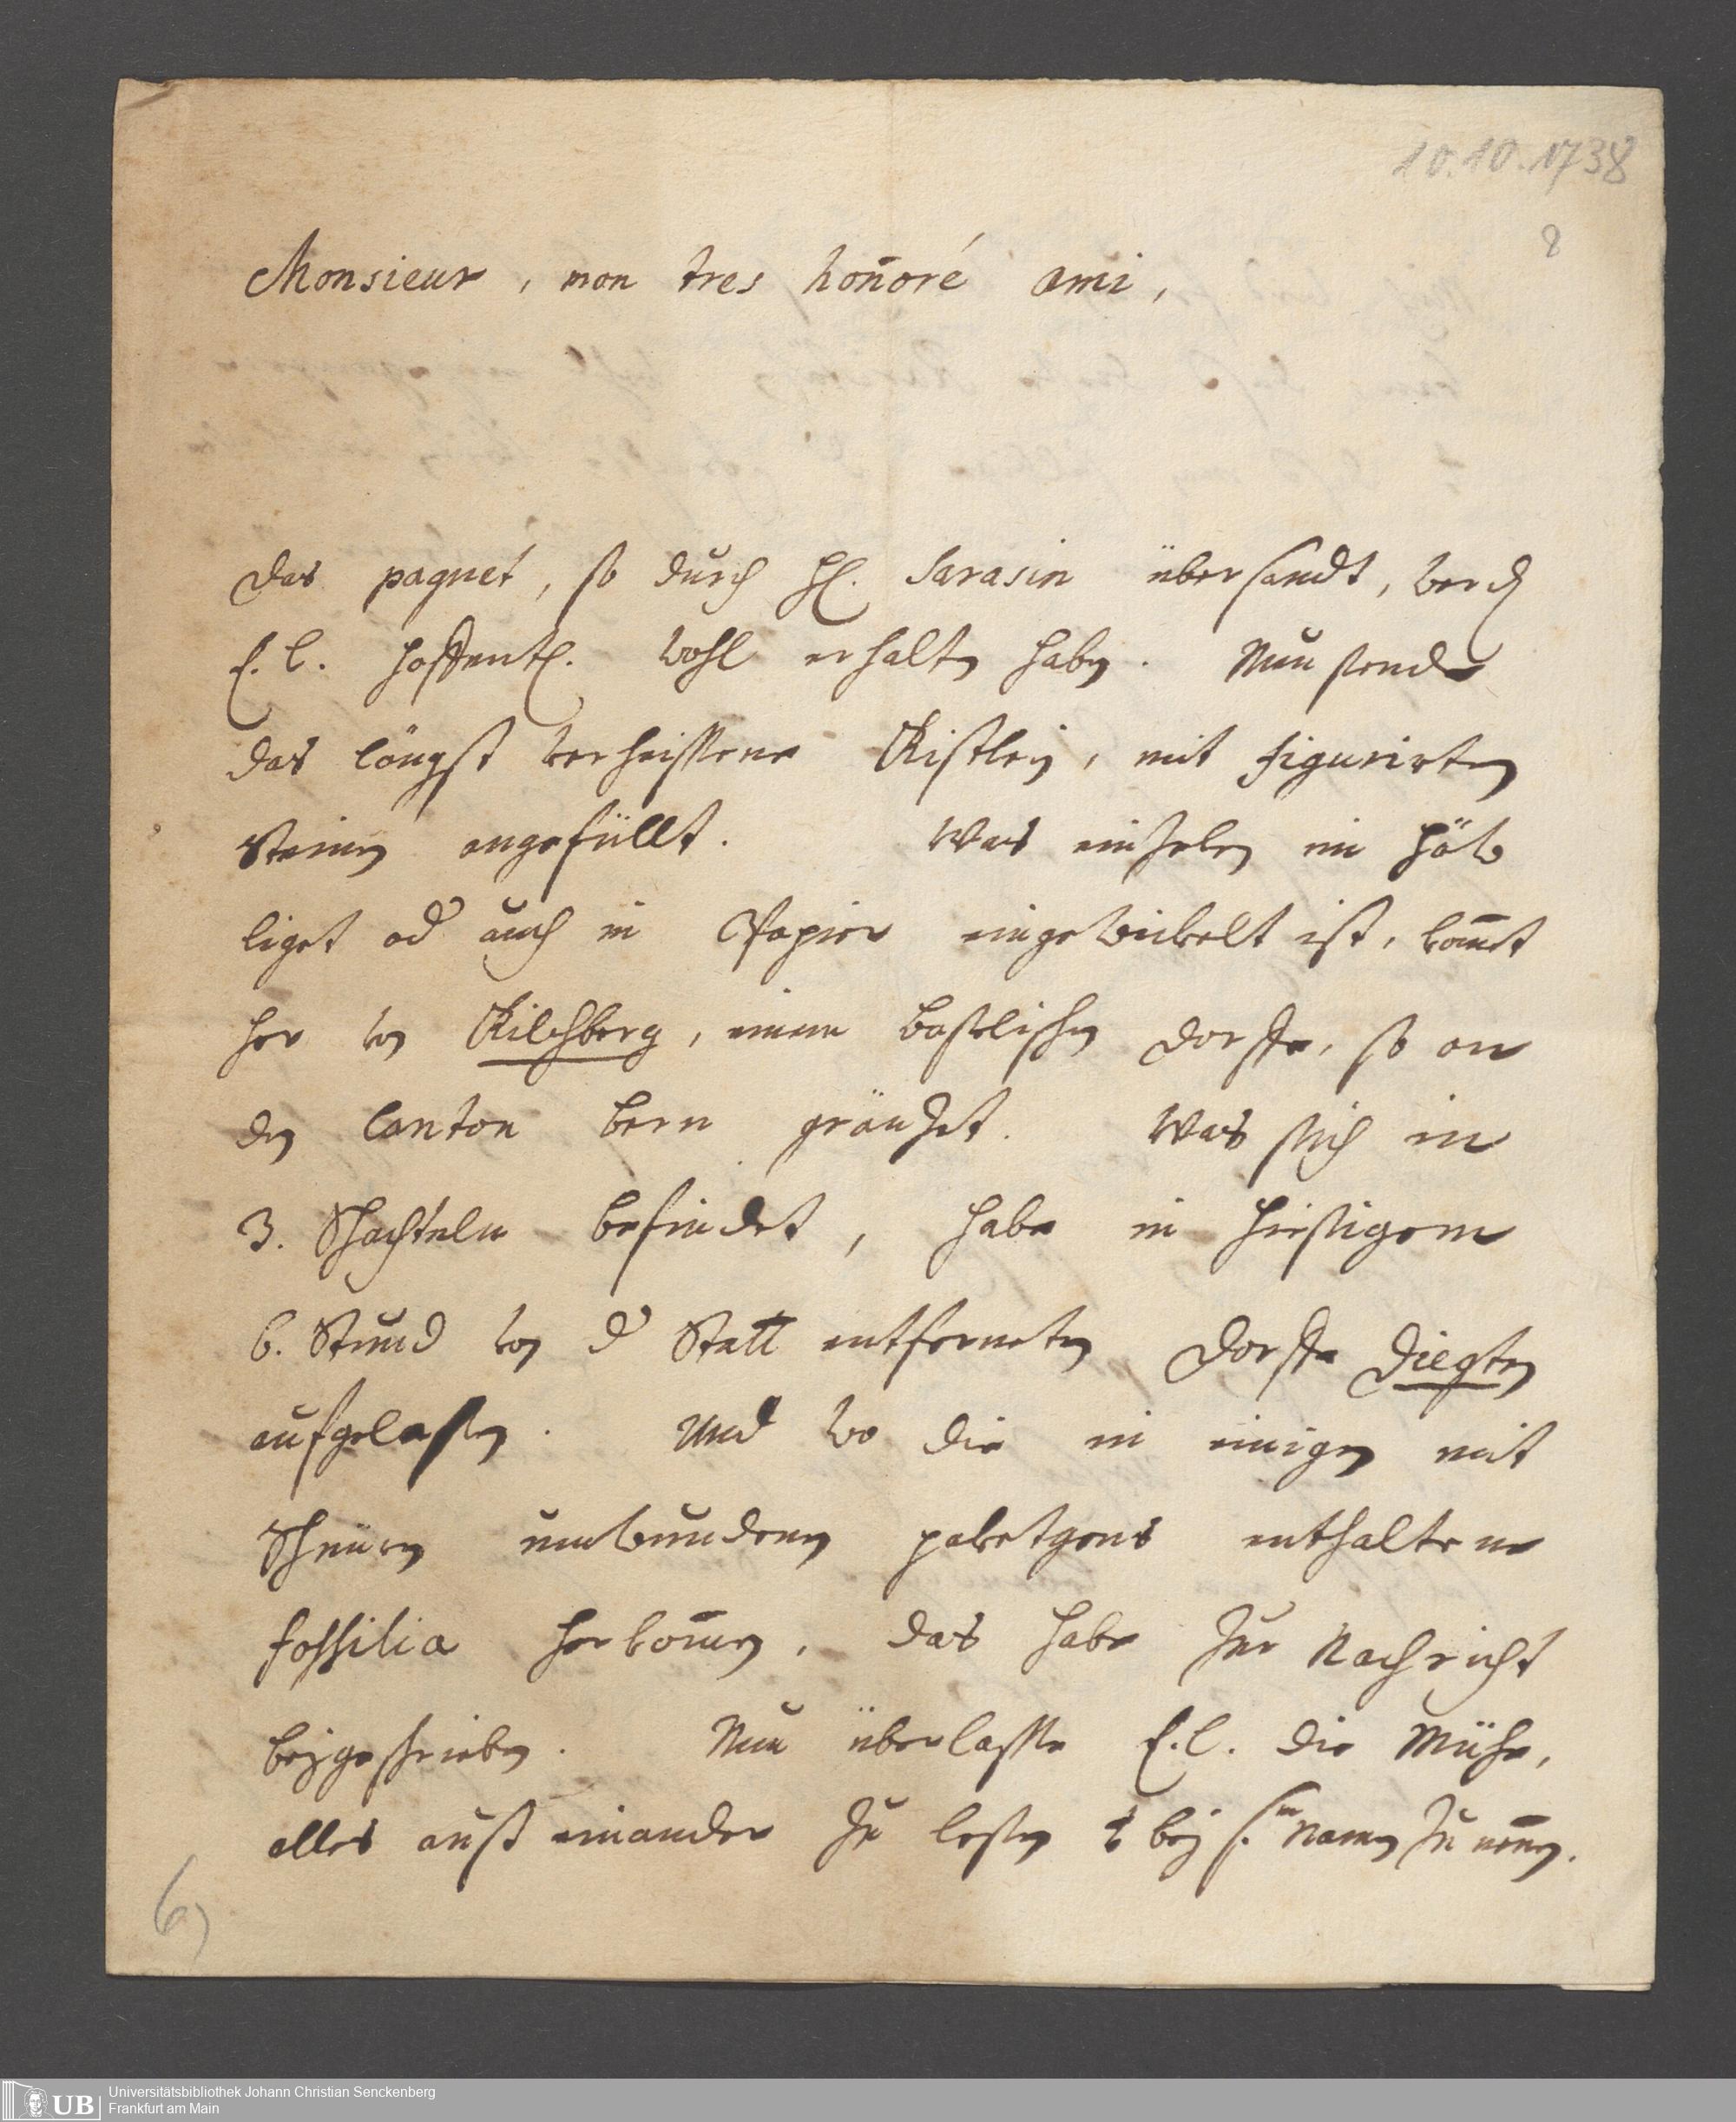 10.10.1738
8
Monsieur, mon tres hon̄oré ami,
Das paquet, so durch H. Sarasin übersandt, werdē
E. E. hoffentl. wohl erhaltē habē. Nun sende
das längst verheissene Kistlein, mit figurirten
Steinē angefüllt. Was einzelen im Häw
liget od auch in Papier eingewickelt ist, kom̄t
her vō Kilchberg, einem Baselischē Dorffe, so an
dē Canton Bern gräntzet. Was sich in
3. Schachteln befindet, habe in hiesigem
6. Stund vō d Statt entfernetē Dorffe Diegten
aufgelesē. Und wo die in einigē mit
Schnürē umbundenē paketgens enthaltene
fossilia herkom̄ē, das habe zur Nachricht
beygeschriebē. Nun überlasse E. E. die Mühe,
alles auß einander zu lesē & bey s.m Namē zu nen̄ē.
6)
UB
Universitätsbibliothek Johann Christian Senckenberg
Frankfurt am Main